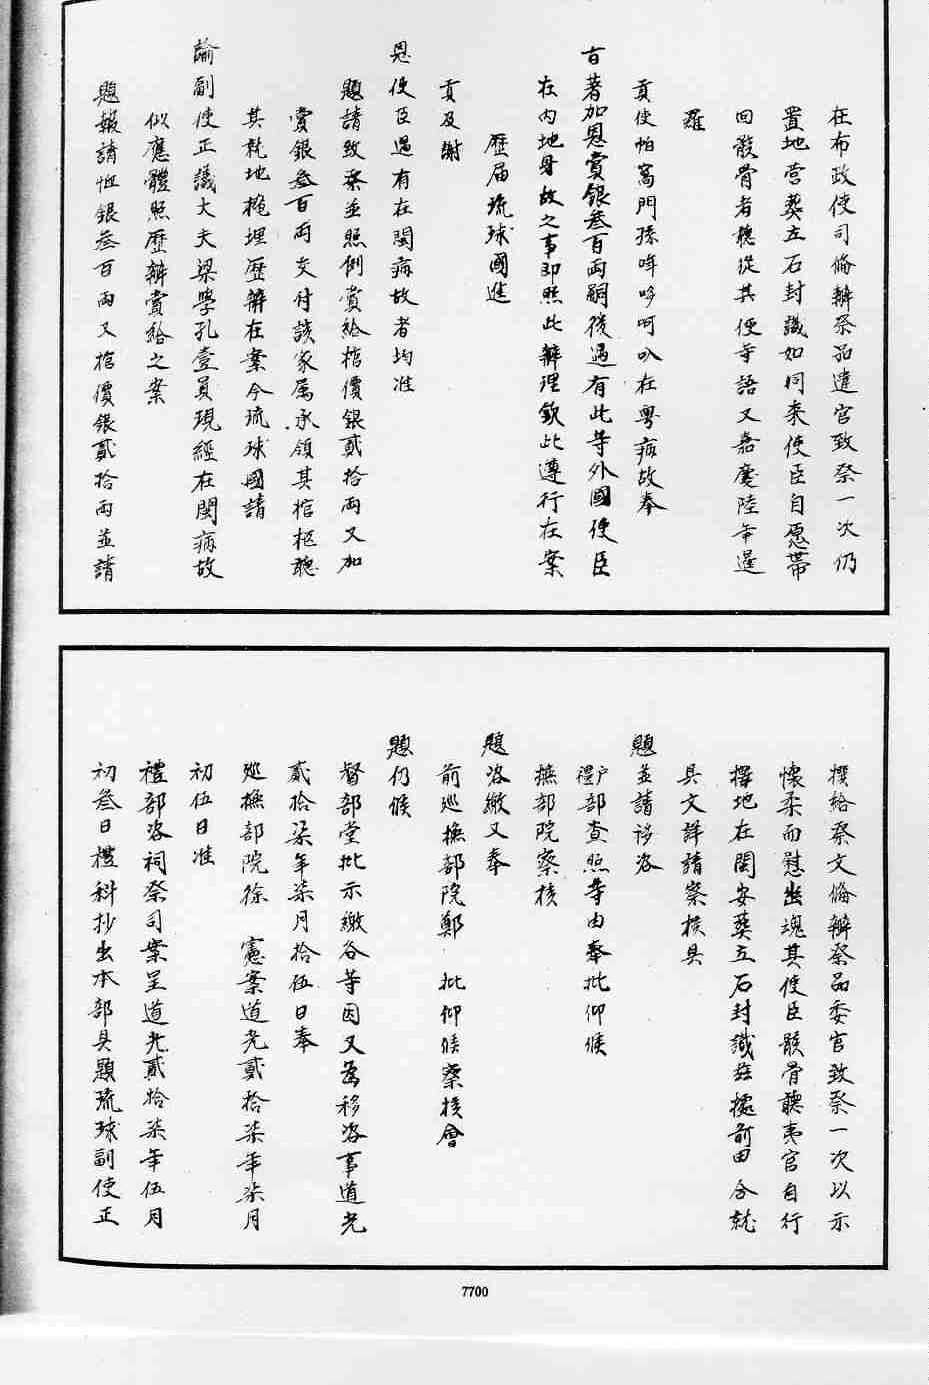 在布政使司俻辦祭品遣官致祭一次仍
置地营葬立石封識如同來使臣自愿帶
回骸骨者聽從其便等語又嘉慶陸年暹
羅
貢使帕窩門孫哖哆呵叭在粵病故奉
旨著加恩賞銀叁百兩嗣後遇有此等外國使臣
在内地身故之事即照此辦理欽此遵行在案
歷届琉球國進
貢及謝
恩使臣遇有在閩病故者均准
題請致祭並照例賞給棺價銀貳拾兩又加
賞銀叁百兩交付該家属承領其棺柩聽
其就地掩埋歷辦在案今琉球國請
諭副使正議大夫梁學孔壹員現經在閩病故
似應體照歷辦賞給之案
題報請恤銀叁百兩又棺價銀貳拾兩並請
撰給祭文俻辦祭品委官致祭一次以示
懷柔而慰幽魂其使臣骸骨聽夷官自行
擇地在閩安葬立石封識茲據前由合就
具文詳請察核具
題並請移咨
禮户部查照等由奉批仰候
撫部院察核
題咨繳又奉
前巡撫部院鄭 批仰候察核會
題仍候
督部堂批示繳各等因又為移咨事道光
貳拾柒年柒月拾伍日奉
巡撫部院徐 憲案道光貳拾柒年柒月
初伍日准
禮部咨祠祭司案呈道光貳拾柒年伍月
初叁日禮科抄出本部具題琉球副使正
7700